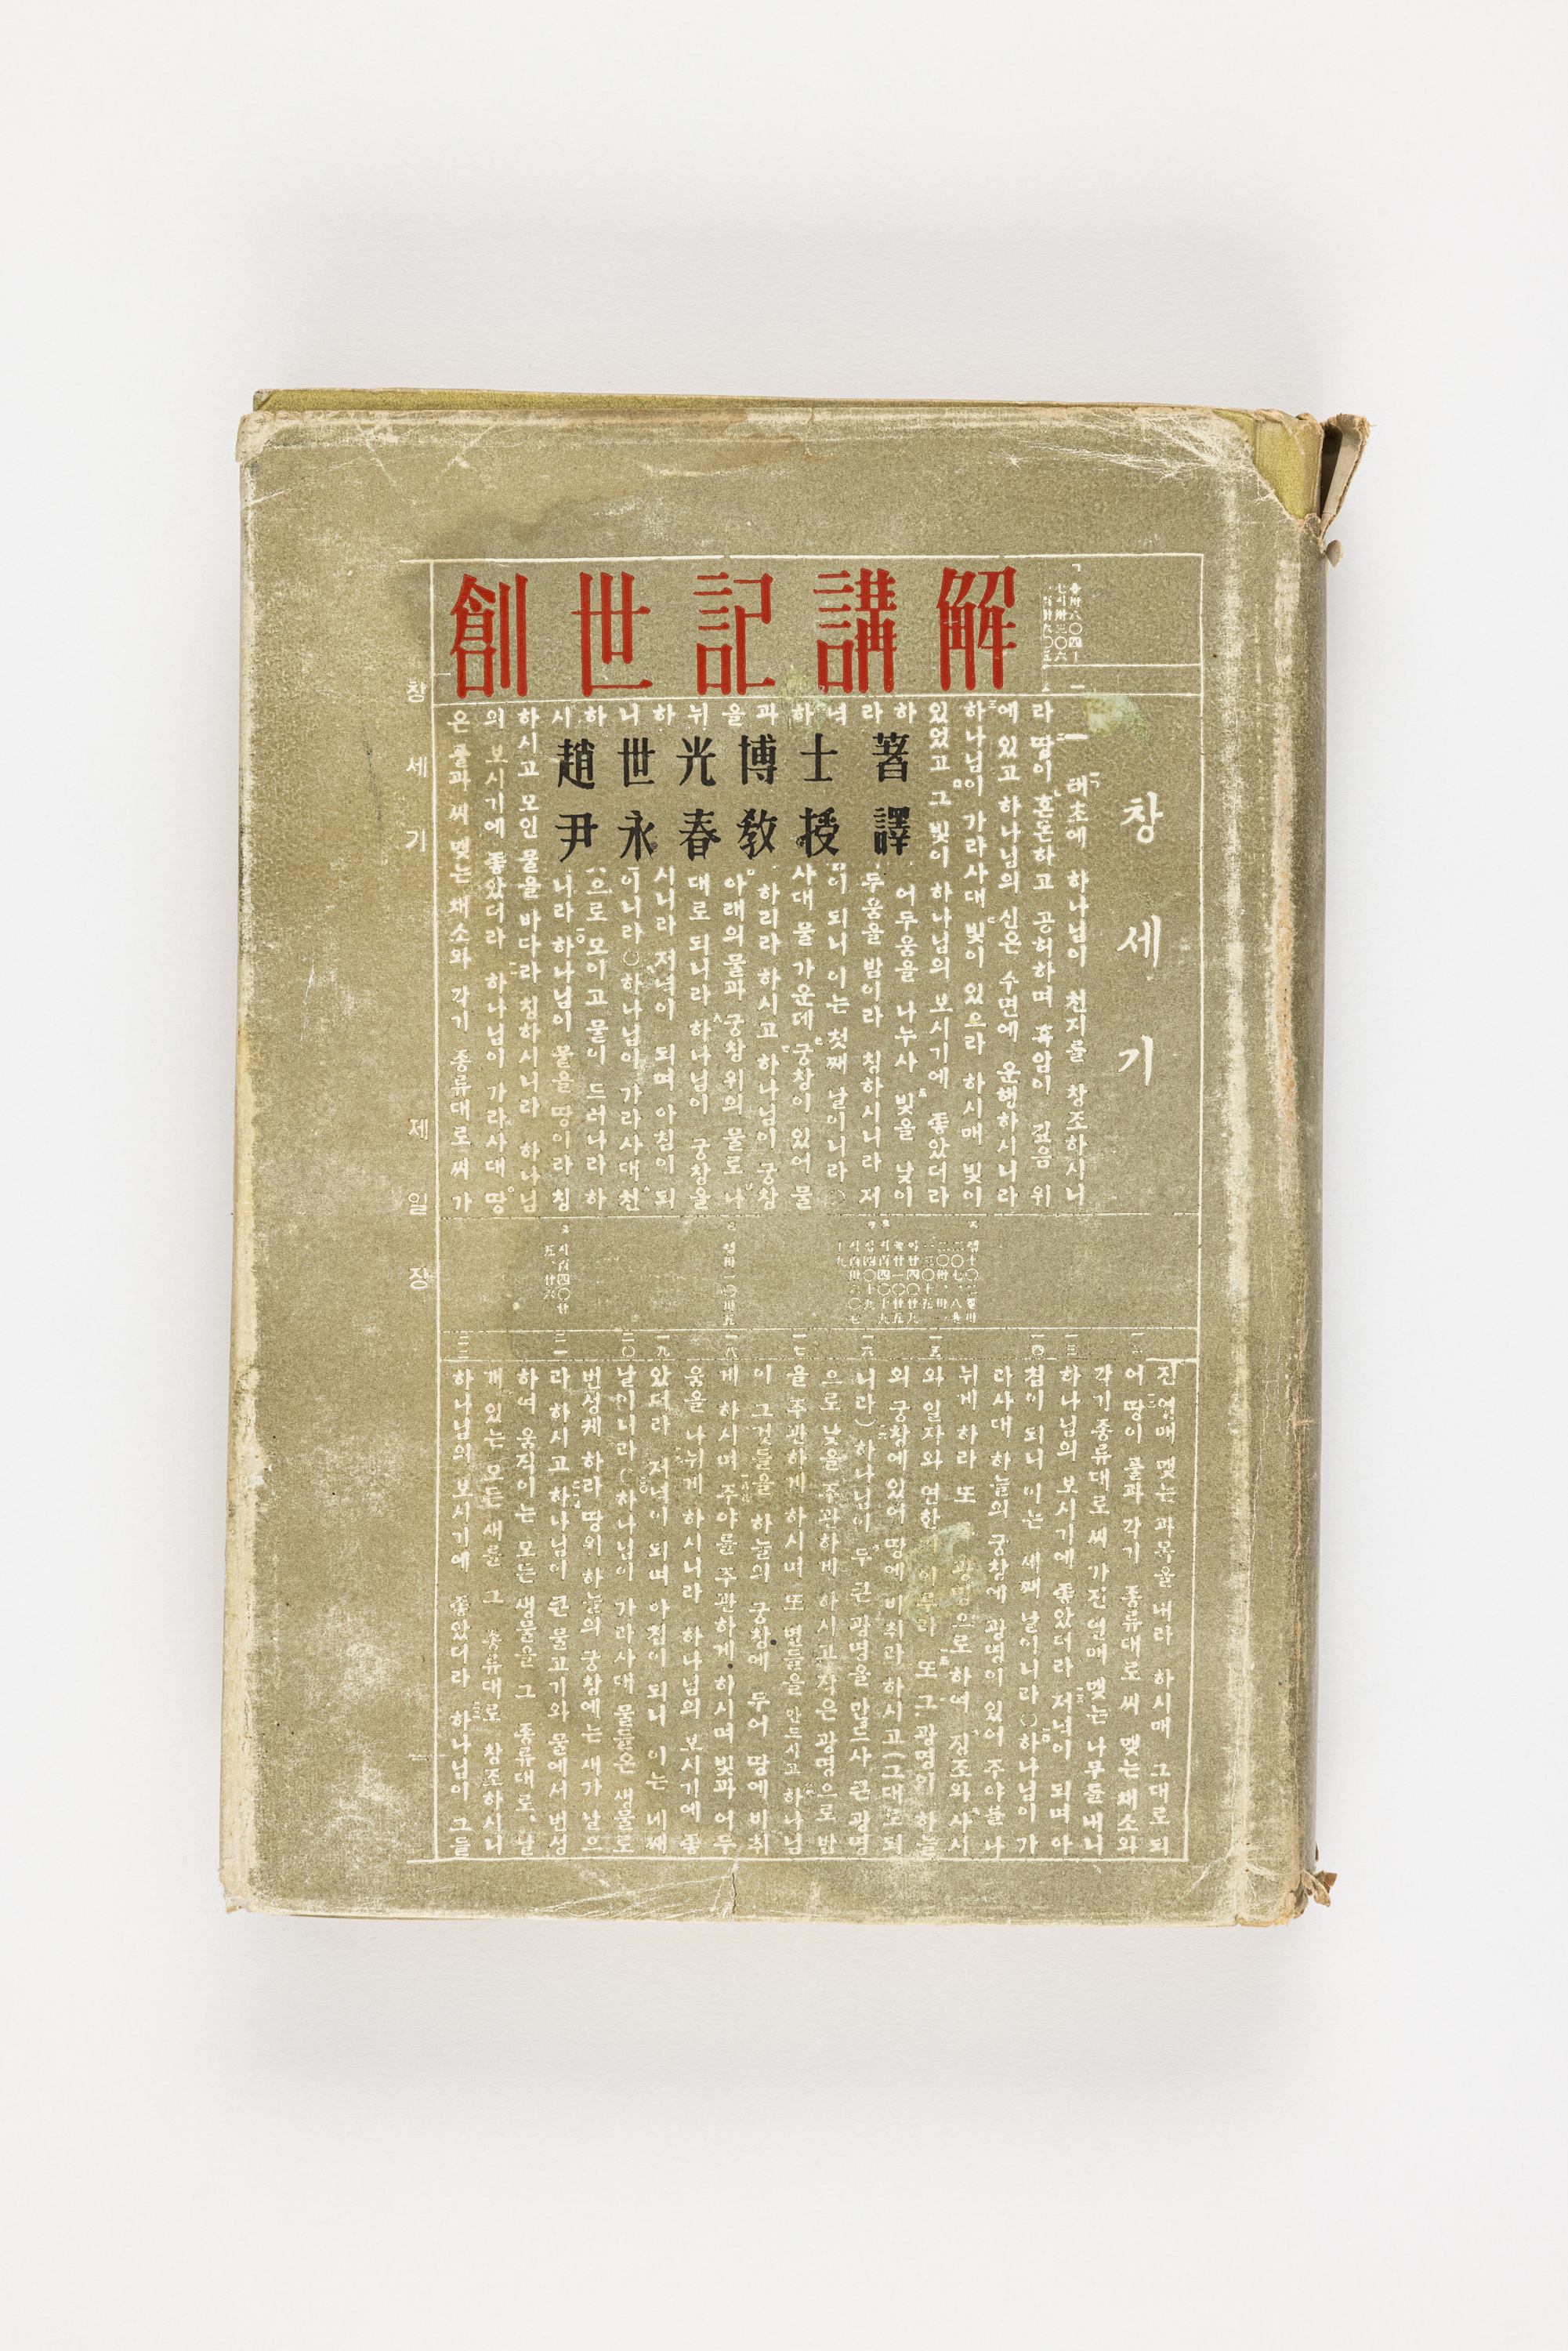 創世記講解
趙世光博士 著
尹永春教授 譯
창세기
一 태초에 하나님이 천지를 창조하시니
라 땅이 혼돈하고 공허하며 흑암이 깊음 위
에 있고 하나님의 신은 수면에 운행하시니라
하나님이 가라사대 빛이 있으라 하시매 빛이
있었고 그 빛이 하나님의 보시기에 좋았더라
하 어두움을 나누사 빛을 낮이
라 두움을 밤이라 칭하시니라 저
녁 이 되니 이는 첫째 날이니라 ○
하 사대 물 가운데 궁창이 있어 물
과 하리라 하시고 하나님이 궁창
을 아래의 물과 궁창 위의 물로 나
뉘 대로 되니라 하나님이 궁창을
하 시니라 저녁이 되며 아침이 되
니 이니라 ○하나님이 가라사대 천
하 으로 모이고 물이 드러나라 하
시 니라 하나님이 물을 땅이라 칭
하시고 모인 물을 바다라 칭하시니라 하나님
의 보시기에 좋았더라 하나님이 가라사대 땅
은 풀과 씨 맺는 채소와 각기 종류대로 씨 가
진 열매 맺는 과목을 내라 하시매 그대로 되
어 땅이 풀과 각기 종류대로 씨 맺는 채소와
각기 종류대로 씨 가진 열매 맺는 나무를 내니
하나님의 보시기에 좋았더라 저녁이 되며 아
침이 되니 이는 세째 날이니라 ○하나님이 가
라사대 하늘의 궁창에 광명이 있어 주야를 나
뉘게 하라 또 광명으로 하여 징조와 사시
와 일자와 연한이 이루라 또 그 광명이 하늘
의 궁창에 있어 땅에 비취라 하시고(그대로 되
니라) 하나님이 두 큰 광명을 만드사 큰 광명
으로 낮을 주관하게 하시고 작은 광명으로 밤
을 주관하게 하시며 또 별들을 만드시고 하나님
이 그것들을 하늘의 궁창에 두어 땅에 비취
게 하시며 주야를 주관하게 하시며 빛과 어두
움을 나뉘게 하시니라 하나님의 보시기에 좋
았더라 저녁이 되며 아침이 되니 이는 네째
날이니라 ○하나님이 가라사대 물들은 생물로
번성케 하라 땅위 하늘의 궁창에는 새가 날으
라 하시고 하나님이 큰 물고기와 물에서 번성
하여 움직이는 모든 생물을 그 종류대로, 날
개 있는 모든 새를 그 종류대로 창조하시니
하나님의 보시기에 좋았더라 하나님이 그들
창세기 제일장